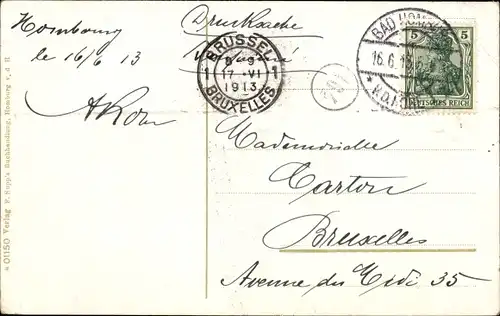 Hombourg
le 16/6 13
Drucksache
BRUSSEL
17-VI
1913
BRUXELLES
1 1
BAD HOMB
16.6.13
5 5
DEUTSCHES REICH
Mademoiselle
Carton
Bruxelles
Avenue du Midi 35
Verlag F. Supp's Buchhandlung, Homburg v. d. H